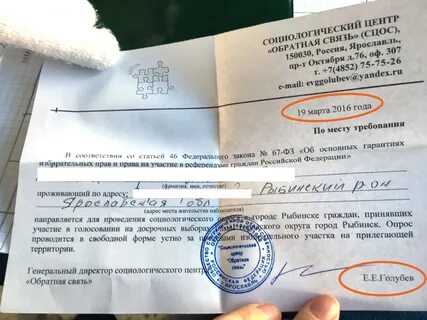 СОЦИОЛОГИЧЕСКИЙ ЦЕНТР
"ОБРАТНАЯ СВЯЗЬ" (СЦОС),
150030, Россия, Ярославль,
пр-т Октября д.76, оф. 307
т. +7(4852) 75-75-26
e-mail: evggolubev@yandex.ru
19 марта 2016 года
По месту требования
В соответствии со статьей 46 Федерального закона № 67-ФЗ «Об основных гарантиях
избирательных прав и права на участие в референдуме граждан Российской Федерации»
(фамилия, имя, отчество)
проживающий по адресу: Рыбинский р-он
Ярославская обл
(адрес места жительства наблюдателя)
направляется для проведения социологического в городе Рыбинске граждан, принявших
участие в голосовании на досрочных выборах округа город Рыбинск. Опрос
проводится в свободной форме устно за избирательного участка на прилегающей
территории.
Социологический
центр
"Обратная
связь"
Генеральный директор социологического центра
«Обратная связь»
Е.Е.Голубев